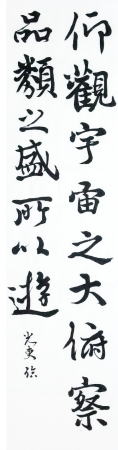 仰觀宇宙之大俯察
品類之盛所以遊